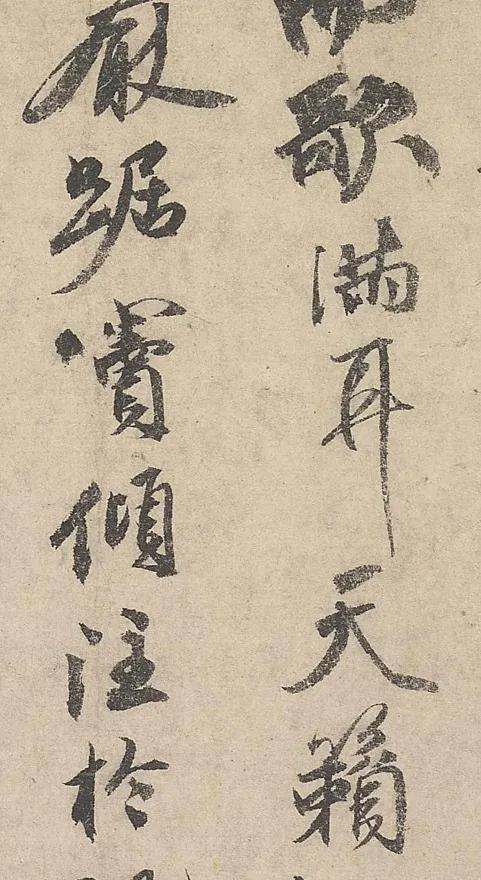 歌滿耳天籟
踞竇傾注於